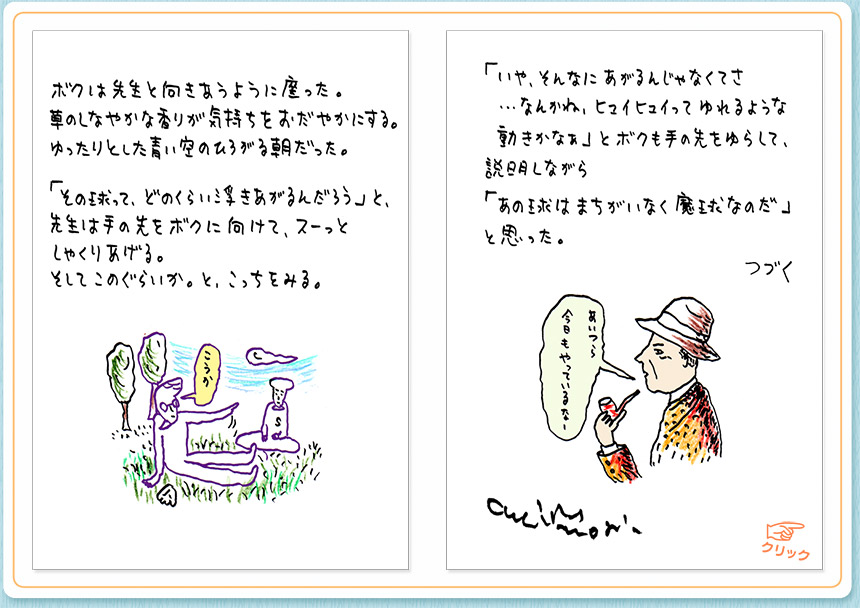 ボクは先生と向きあうように座った。
草のしなやかな香りが気持ちをおだやかにする。
ゆったりとした青い空のひろがる朝だった。
「その球って、どのくらい浮きあがるんだろう」と、
先生は手の先をボクに向けて、スーっと
しゃくりあげる。
そしてこのぐらいか。と、こっちをみる。
こうか
S
「いや、そんなにあがるんじゃなくてさ
…なんかね、ヒュイヒュイってゆれるような
動きかなぁ」とボクも手の先をゆらして、
説明しながら
「あの球はまちがいなく魔球なのだ」
と思った。
つづく
あいつら
今日もやっているなー
クリック